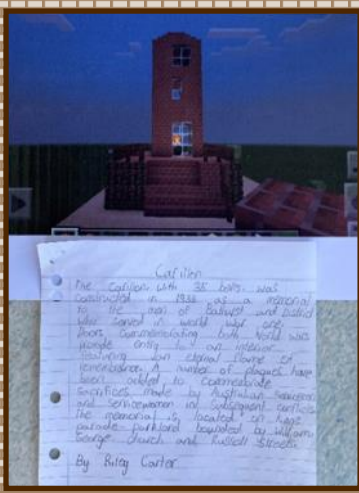 Carillon
The Carillon with 35 bells was
constructed in 1933 as a memorial
to the men of Bathurst and District
who served in world war one.
Doors commemorating both world wars
provide entry to an interior
featuring an eternal flame of
remembrance. A number of plaques have
been added to commemorate
sacrifices made by Australian servicemen
and servicewomen in subsequent conflicts
The memorial is located on kings
parade parkland bounded by William,
George, church and Russell Streets.
By Riley Carter